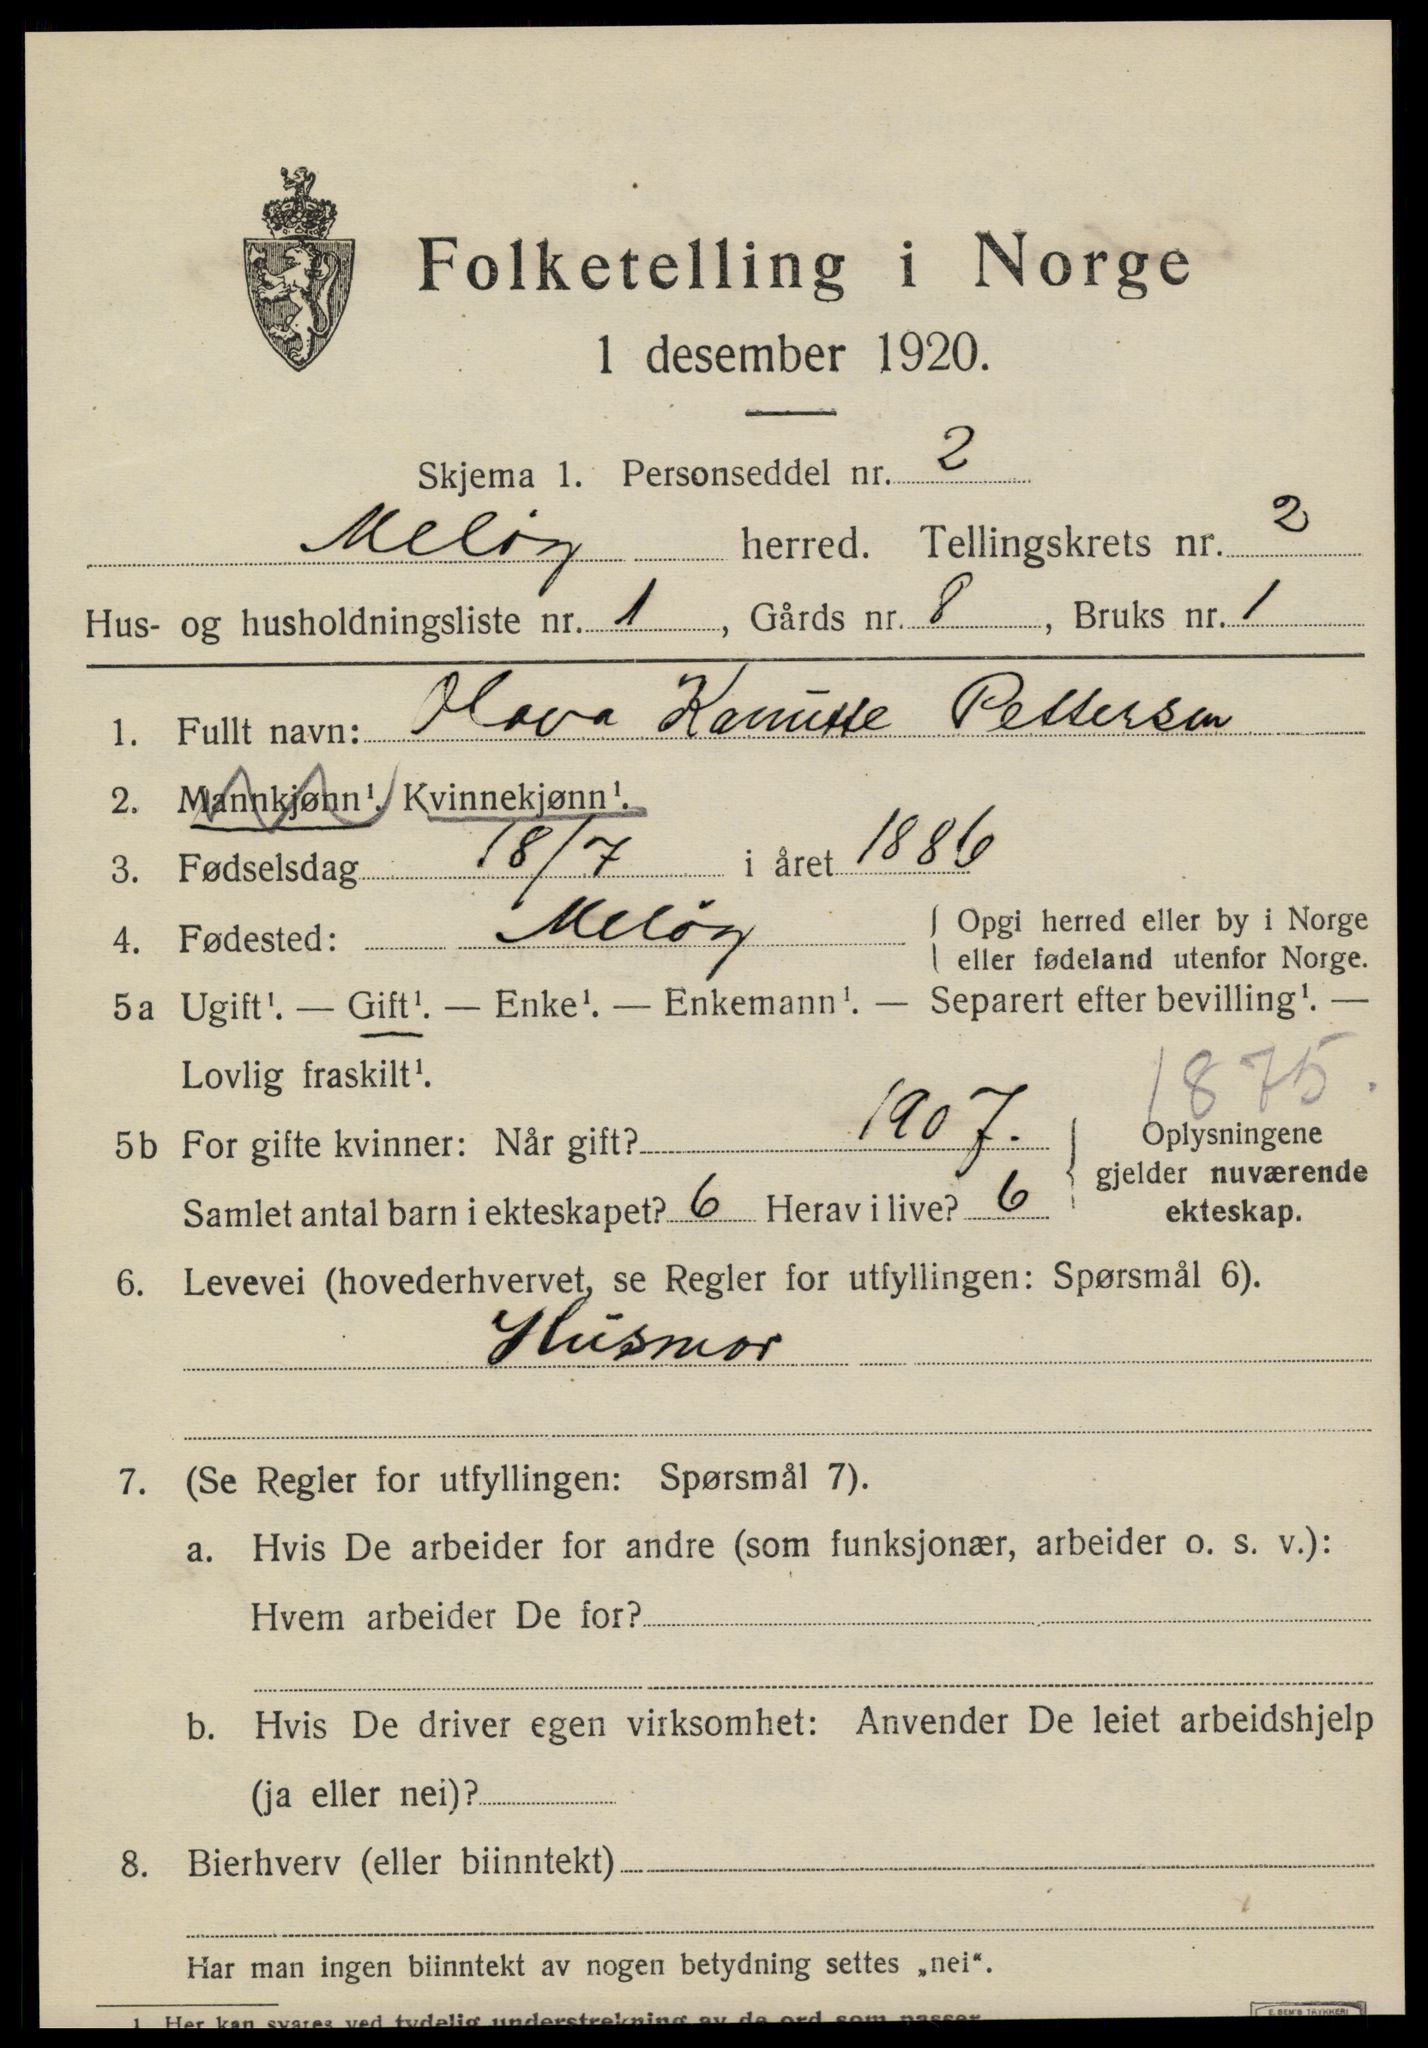 Folketelling i Norge
1 desember 1920.
Skjema 1. Personseddel nr. 2
Meløy herred. Tellingskrets nr. 2
Hus- og husholdningsliste nr. 1, Gårds nr. 8, Bruks nr. 1
1. Fullt navn: Olava Pettersen
2. Mannkjønn¹. Kvinnekjønn¹.
3. Fødselsdag 18/7 i året 1886
4. Fødested: Meløy { Opgi herred eller by i Norge
eller fødeland utenfor Norge.
5a Ugift¹. — Gift¹. — Enke¹. — Enkemann¹. — Separert efter bevilling¹. —
Lovlig fraskilt¹.
1875.
5b For gifte kvinner: Når gift? 1907. { Oplysningene
gjelder nuværende
Samlet antal barn i ekteskapet? 6 Herav i live? 6 ekteskap.
6. Levevei (hovederhvervet, se Regler for utfyllingen: Spørsmål 6).
Husmor
7. (Se Regler for utfyllingen: Spørsmål 7).
a. Hvis De arbeider for andre (som funksjonær, arbeider o. s. v.):
Hvem arbeider De for?
b. Hvis De driver egen virksomhet: Anvender De leiet arbeidshjelp
(ja eller nei)?
8. Bierhverv (eller biinntekt)
Har man ingen biinntekt av nogen betydning settes „nei“.
1. Her kan svares ved tydelig understrekning av de ord som passer.
E. SEM'S TRYKKERI